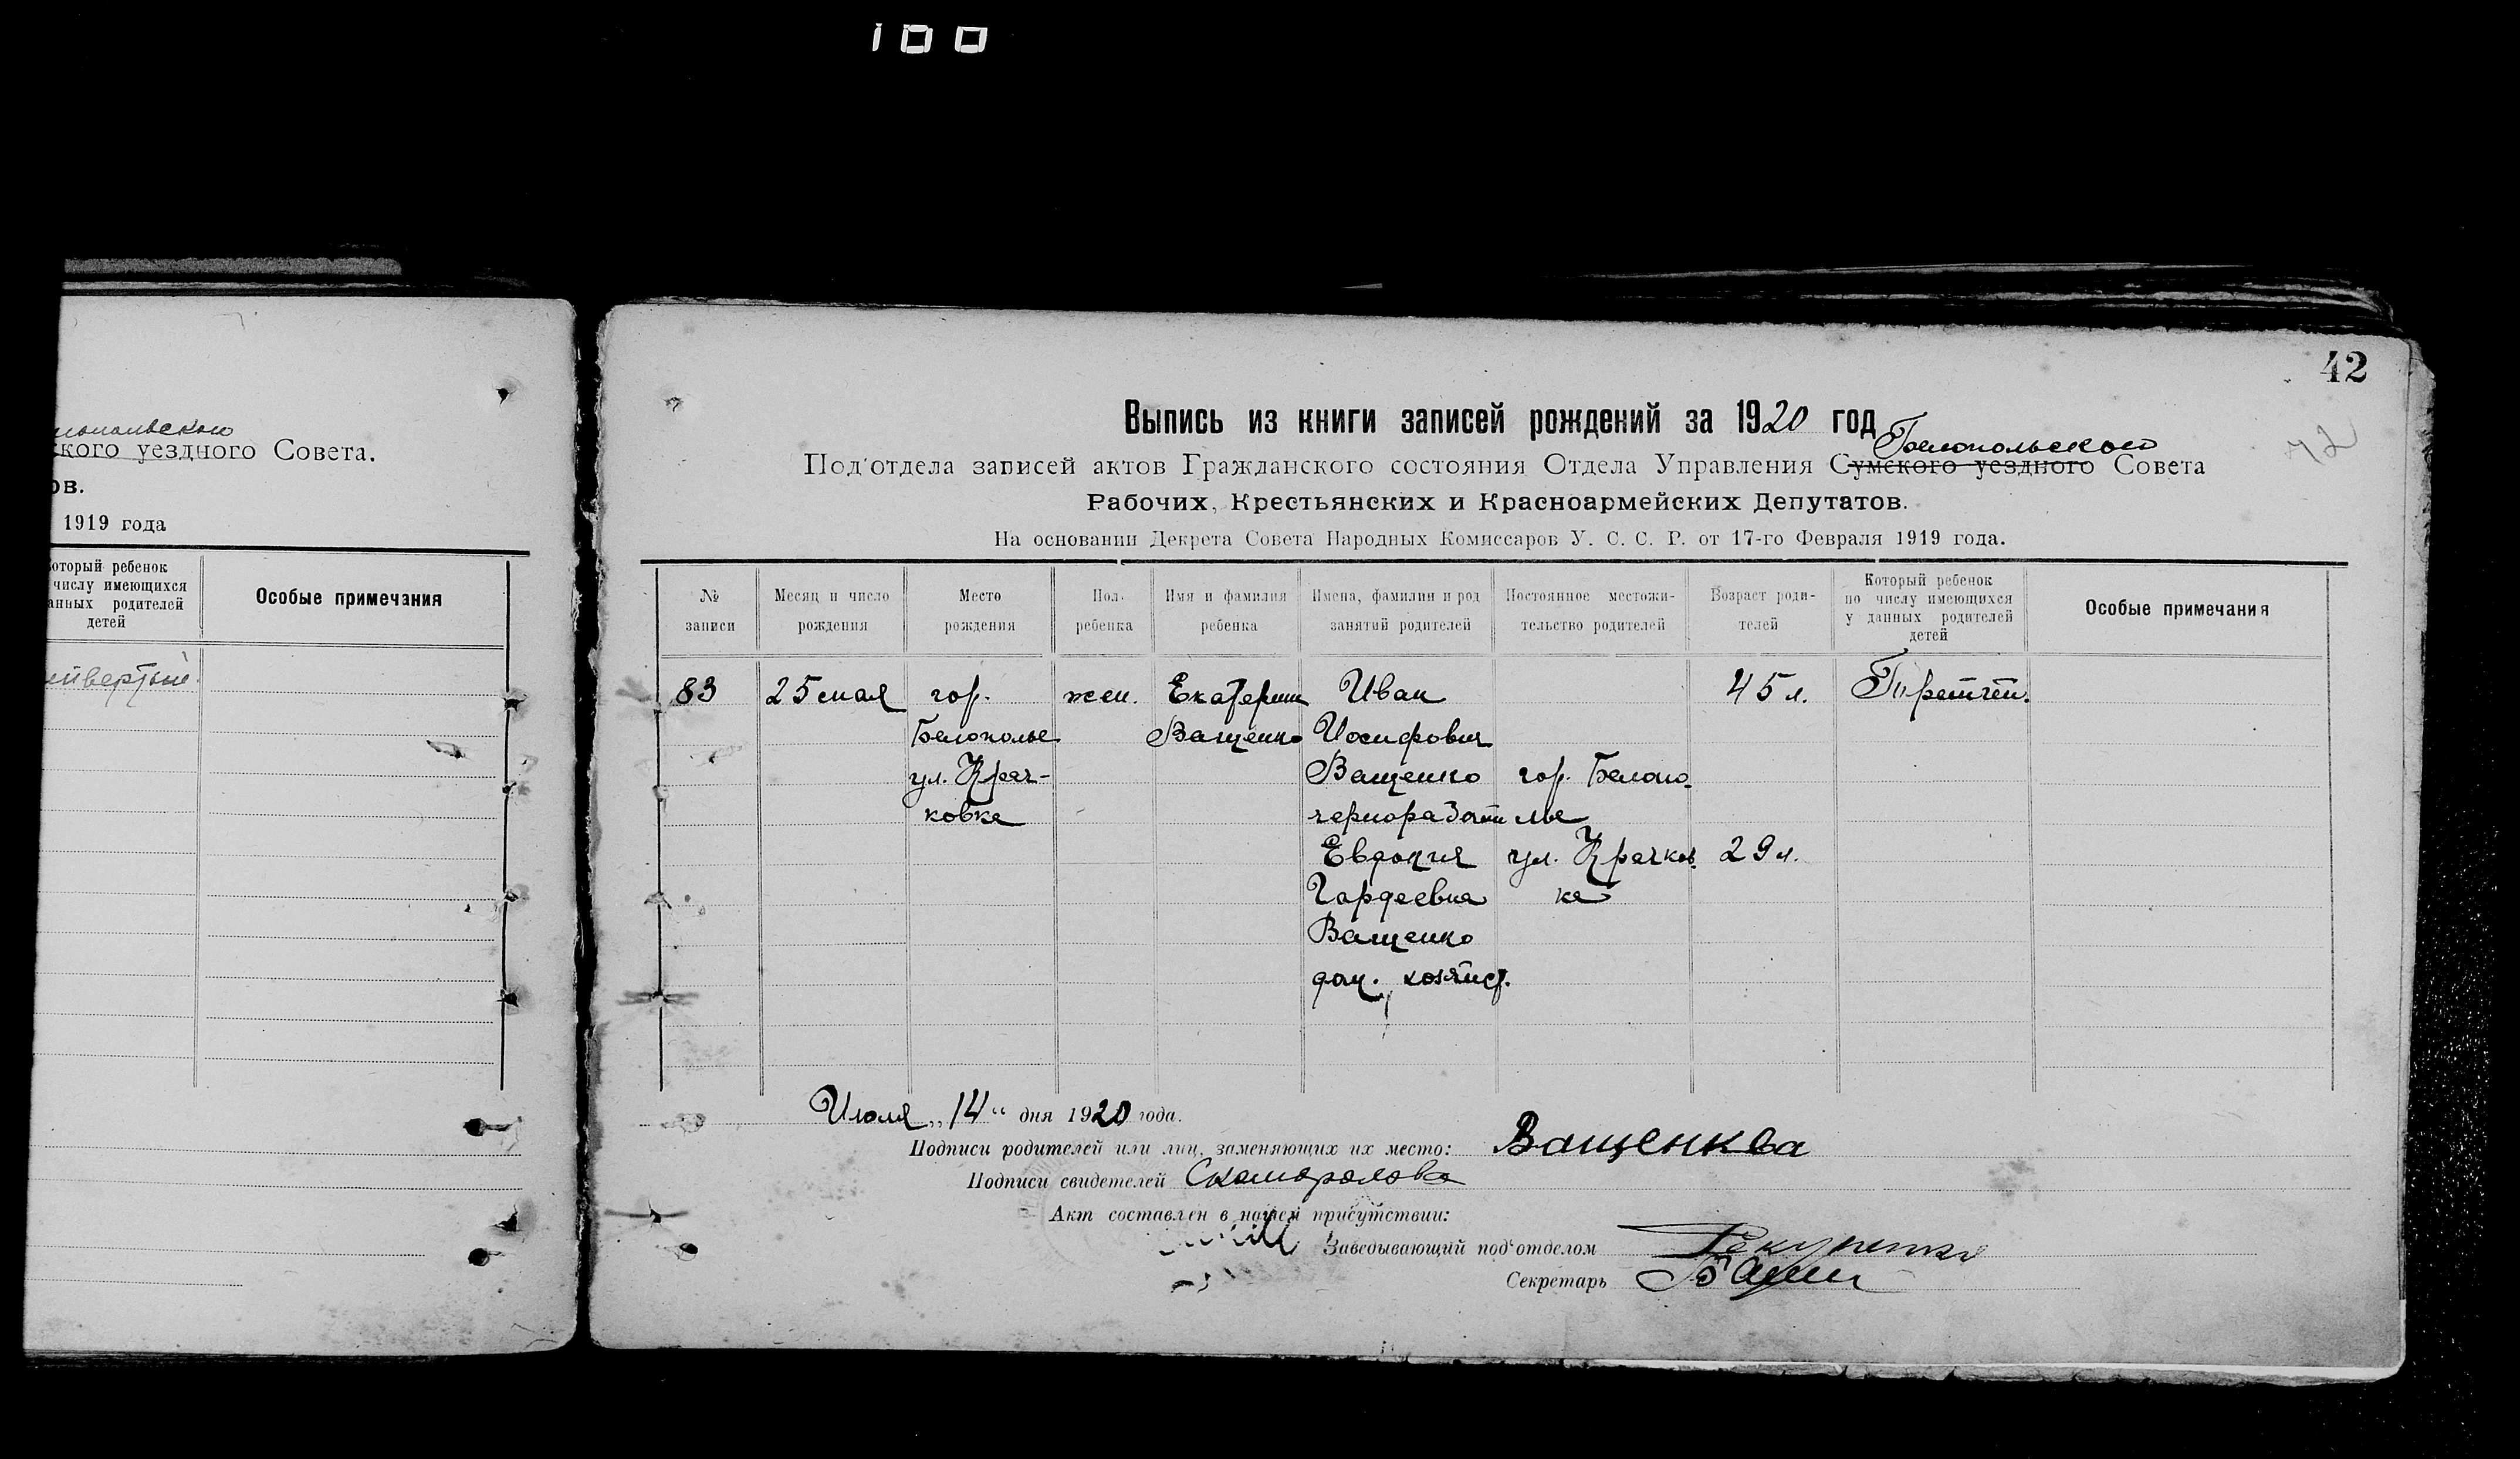 100
кого уездного Совета.
ов.
1919 года
который ребенок
числу имеющихся
данных родителей
детей
Особые примечания
42
Выпись из книги записей рождений за 1920 год
Белопольского
Под'отдела записей актов Гражданского состояния Отдела Управления Сумского уездного Совета
Рабочих, Крестьянских и Красноармейских Депутатов.
На основании Декрета Совета Народных Комиссаров У. С. С. Р. от 17-го Февраля 1919 года.
№ записи
Месяц и число рождения
Место рождения
Пол ребенка
Имя и фамилия ребенка
Имена, фамилии и род занятий родителей
Постоянное местожительство родителей
Возраст родителей
Который ребенок по числу имеющихся у данных родителей детей
Особые примечания
83 25 мая гор. жен. Екатерина Иван 45 л.
Белополье Ващенко Иосифович
ул. Крач- Ващенко гор. Белопо-
ковка лье
Евдокия ул. Крачков- 29 л.
Гордеевна ка
Ващенко
дом. хозяйст.
Июля „14“ дня 1920 года.
Подписи родителей или лиц, заменяющих их место: Ващенква
Подписи свидетелей
Акт составлен в нашем присутствии:
Заведывающий под'отделом
Секретарь